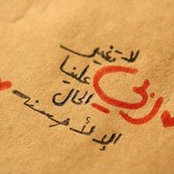 لا تغير
ربي
علينا
الحال
إلا لأحسنه